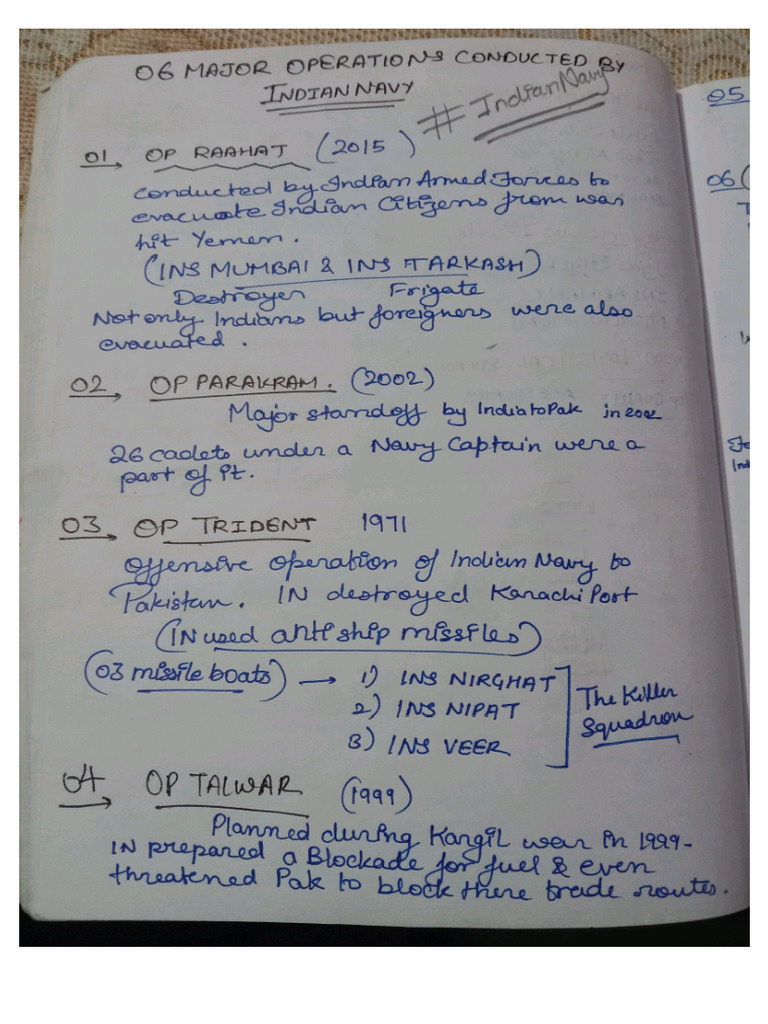 06 MAJOR OPERATIONS CONDUCTED BY
INDIAN NAVY
#IndianNavy
01 OP RAAHAT (2015)
conducted by Indian Armed Forces to
evacuate Indian Citizens from war
hit Yemen.
(INS MUMBAI & INS TARKASH)
Destroyer Frigate
Not only Indians but foreigners were also
evacuated.
02 OP PARAKRAM. (2002)
Major standoff by India to Pak in 2002
26 cadets under a Navy Captain were a
part of it.
03 OP TRIDENT 1971
Offensive operation of Indian Navy to
Pakistan. IN destroyed Karachi Port
(IN used anti ship missiles)
(03 missile boats) → 1) INS NIRGHAT
2) INS NIPAT
3) INS VEER
The Killer
Squadron
04 OP TALWAR (1999)
Planned during Kargil war in 1999-
IN prepared a Blockade for fuel & even
threatened Pak to block there trade routes.
05
06 (